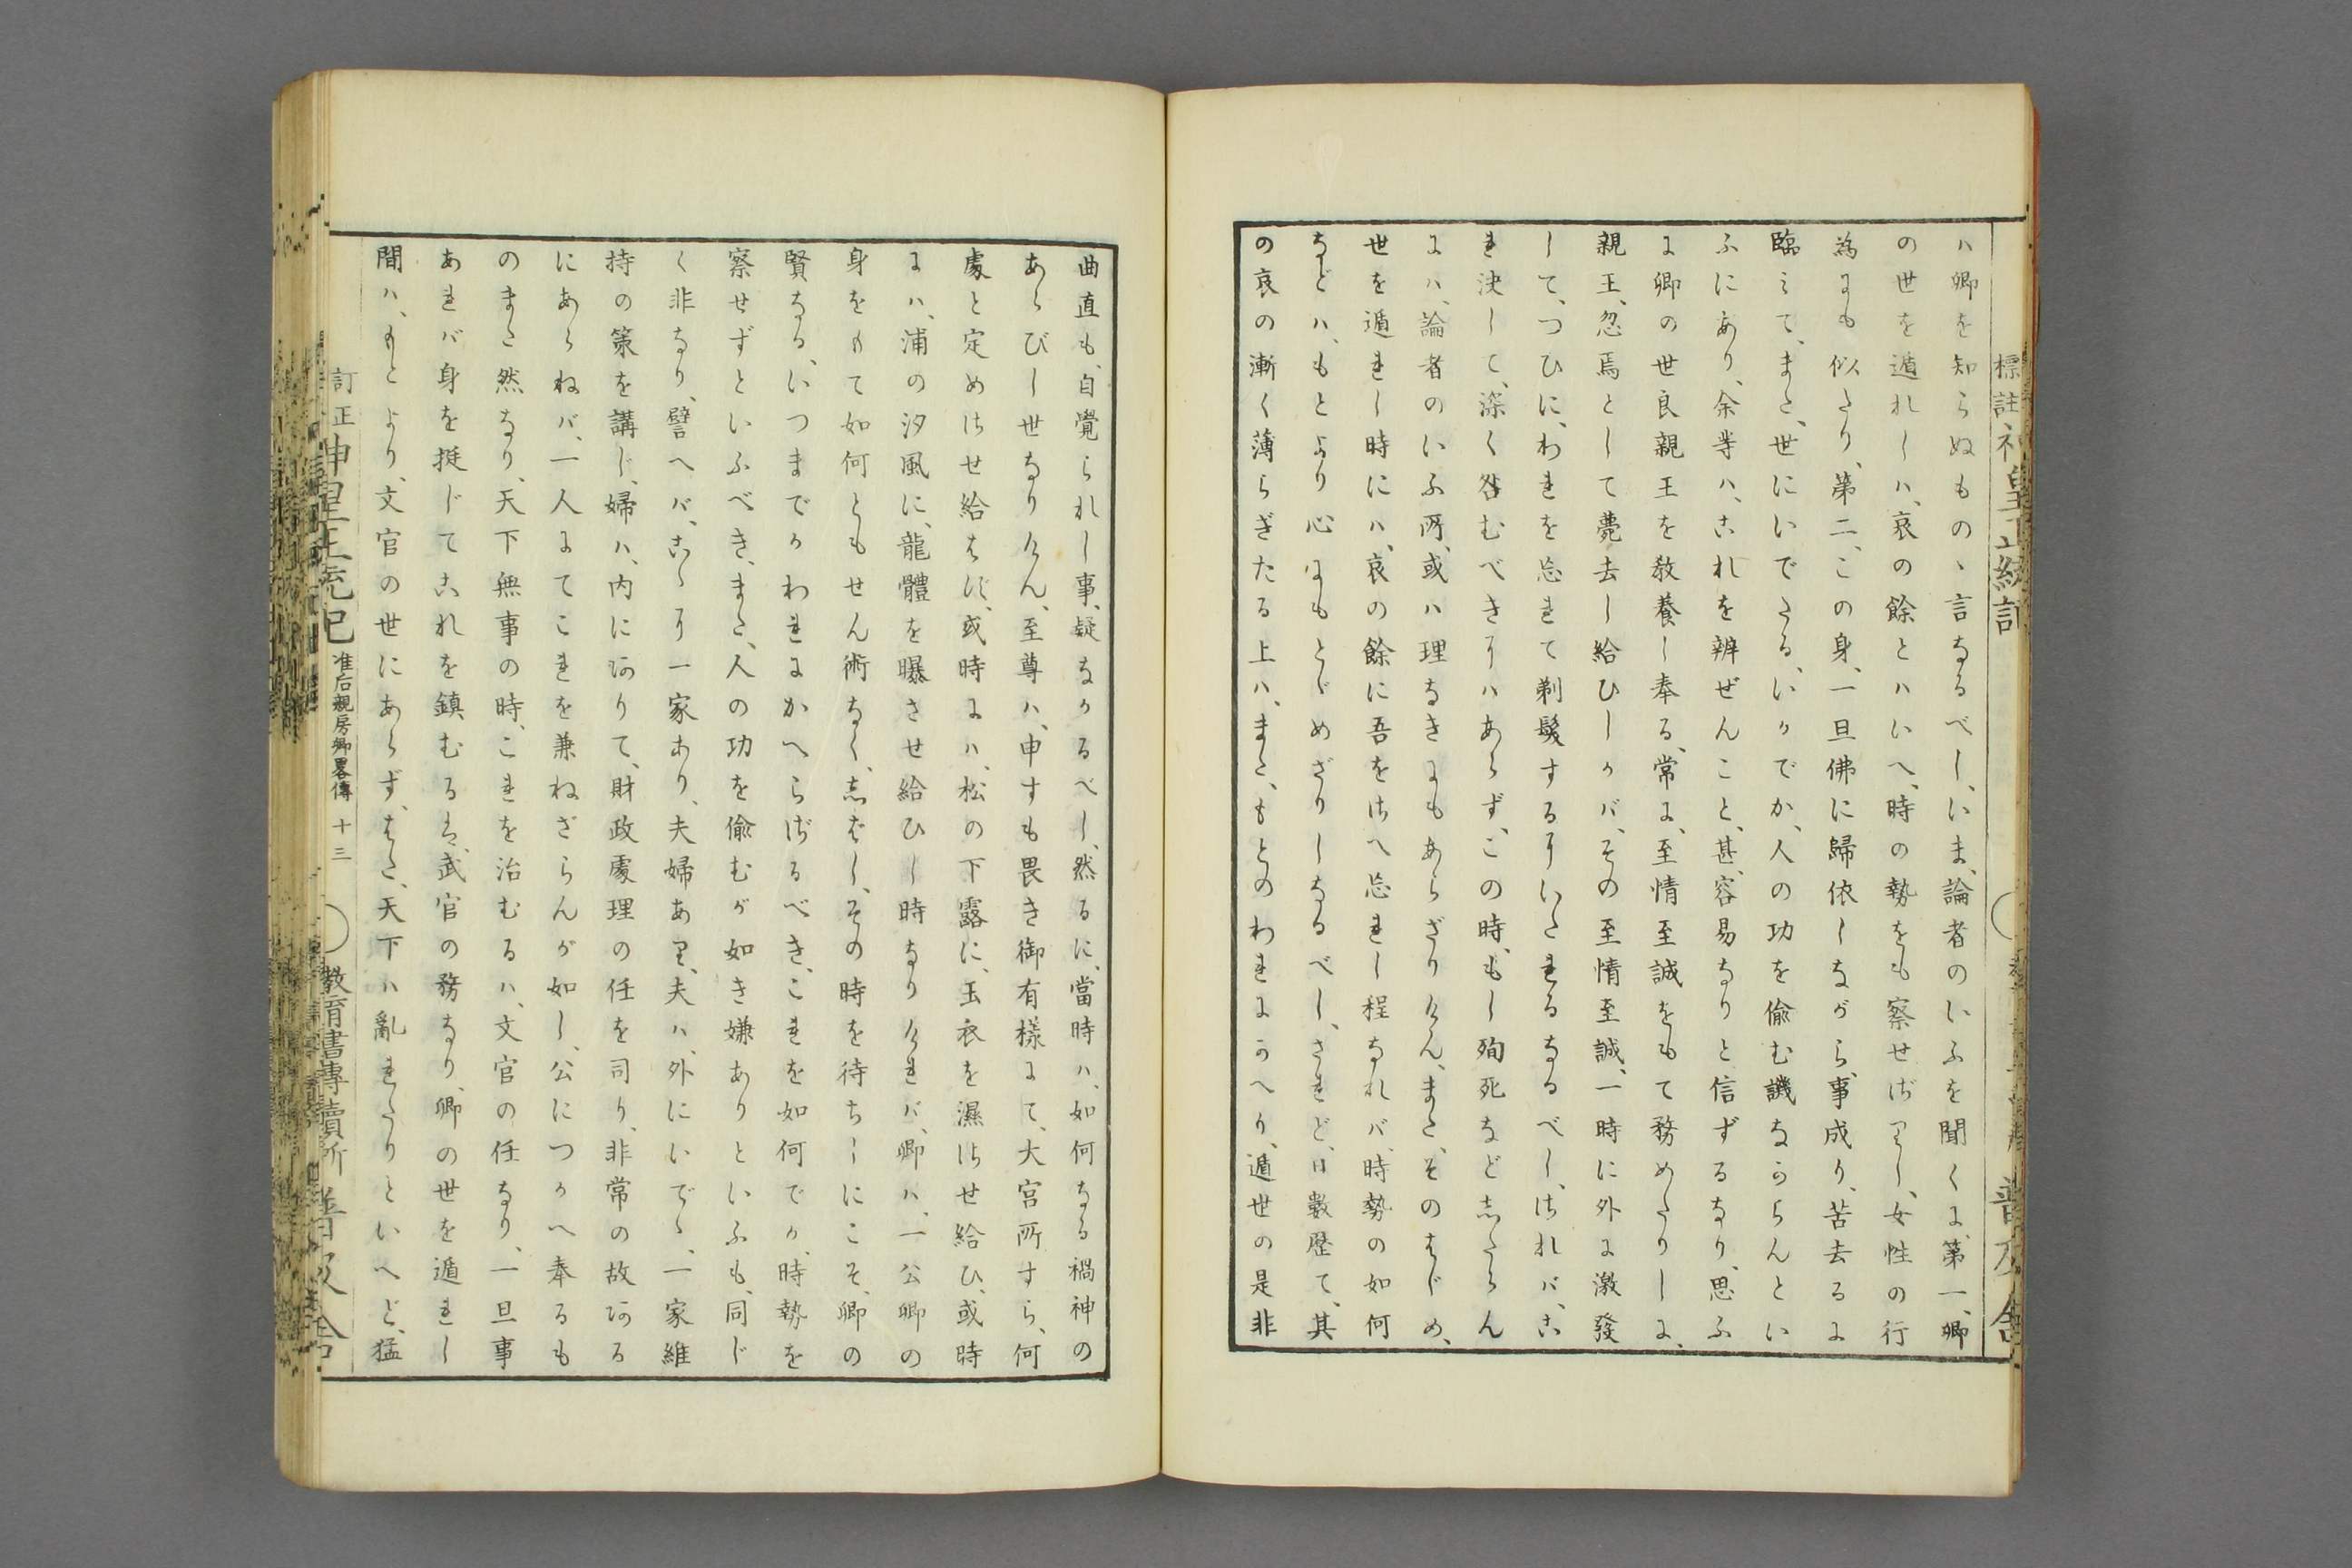 標註神皇正統記
普及舎
ハ卿を知らぬものゝ言なるべし、いま、論者のいふを聞くに、第一、卿
の世を遁れしハ、哀の餘とハいへ、時の勢をも察せざりし、女性の行
為にも似たり、第二、この身、一旦佛に歸依しながら、事成り、苦去るに
臨みて、また、世にいでたる、いかでか、人の功を偸む譏なからんとい
ふにあり、余等ハ、これを辨ぜんこと、甚、容易なりと信ずるなり、思ふ
に卿の世良親王を敎養し奉る、常に、至情至誠をもて務めたりしに、
親王、忽焉として薨去し給ひしかバ、その至情至誠、一時に外に激發
して、つひに、われを忘れて剃髮するにいたれるなるべし、されバ、こ
れ決して、深く咎むべきにハあらず、この時、もし殉死などしたらん
にハ、論者のいふ所、或ハ理なきにもあらざりけん、また、そのはじめ、
世を遁れし時にハ、哀の餘に吾をさへ忘れし程なれバ、時勢の如何
などハ、もとより心にもとゞめざりしなるべし、されど、日數歷て、其
の哀の漸く薄らぎたる上ハ、また、もとのわれにかへり、遁世の是非
曲直も、自覺られし事、疑なかるべし、然るに、當時ハ、如何なる禍神の
あらびし世なりけん、至尊ハ、申すも畏き御有樣にて、大宮所すら、何
處と定めさせ給はず、或時にハ、松の下露に、玉衣を濕させ給ひ、或時
にハ、浦の汐風に、龍體を曝させ給ひし時なりけれバ、卿ハ、一公卿の
身をもて如何ともせん術なく、志ばし、その時を待ちしにこそ、卿の
賢なる、いつまでかわれにかへらざるべき、これを如何でか、時勢を
察せずといふべき、また、人の功を偸むが如き嫌ありといふも、同じ
く非なり、譬へバ、こゝに一家あり、夫婦あり、夫ハ、外にいでゝ、一家維
持の策を講じ、婦ハ、内にありて、財政處理の任を司り、非常の故ある
にあらねバ、一人にてこれを兼ねざらんが如し、公につかへ奉るも
のまた然なり、天下無事の時、これを治むるハ、文官の任なり、一旦事
あれバ身を挺じてこれを鎮むるは、武官の務なり、卿の世を遁れし
間ハ、もとより、文官の世にあらず、はた、天下ハ亂れたりといへど、猛
訂正神皇正統記 准后親房卿畧傳 十三 敎育書專賣所 普及舍